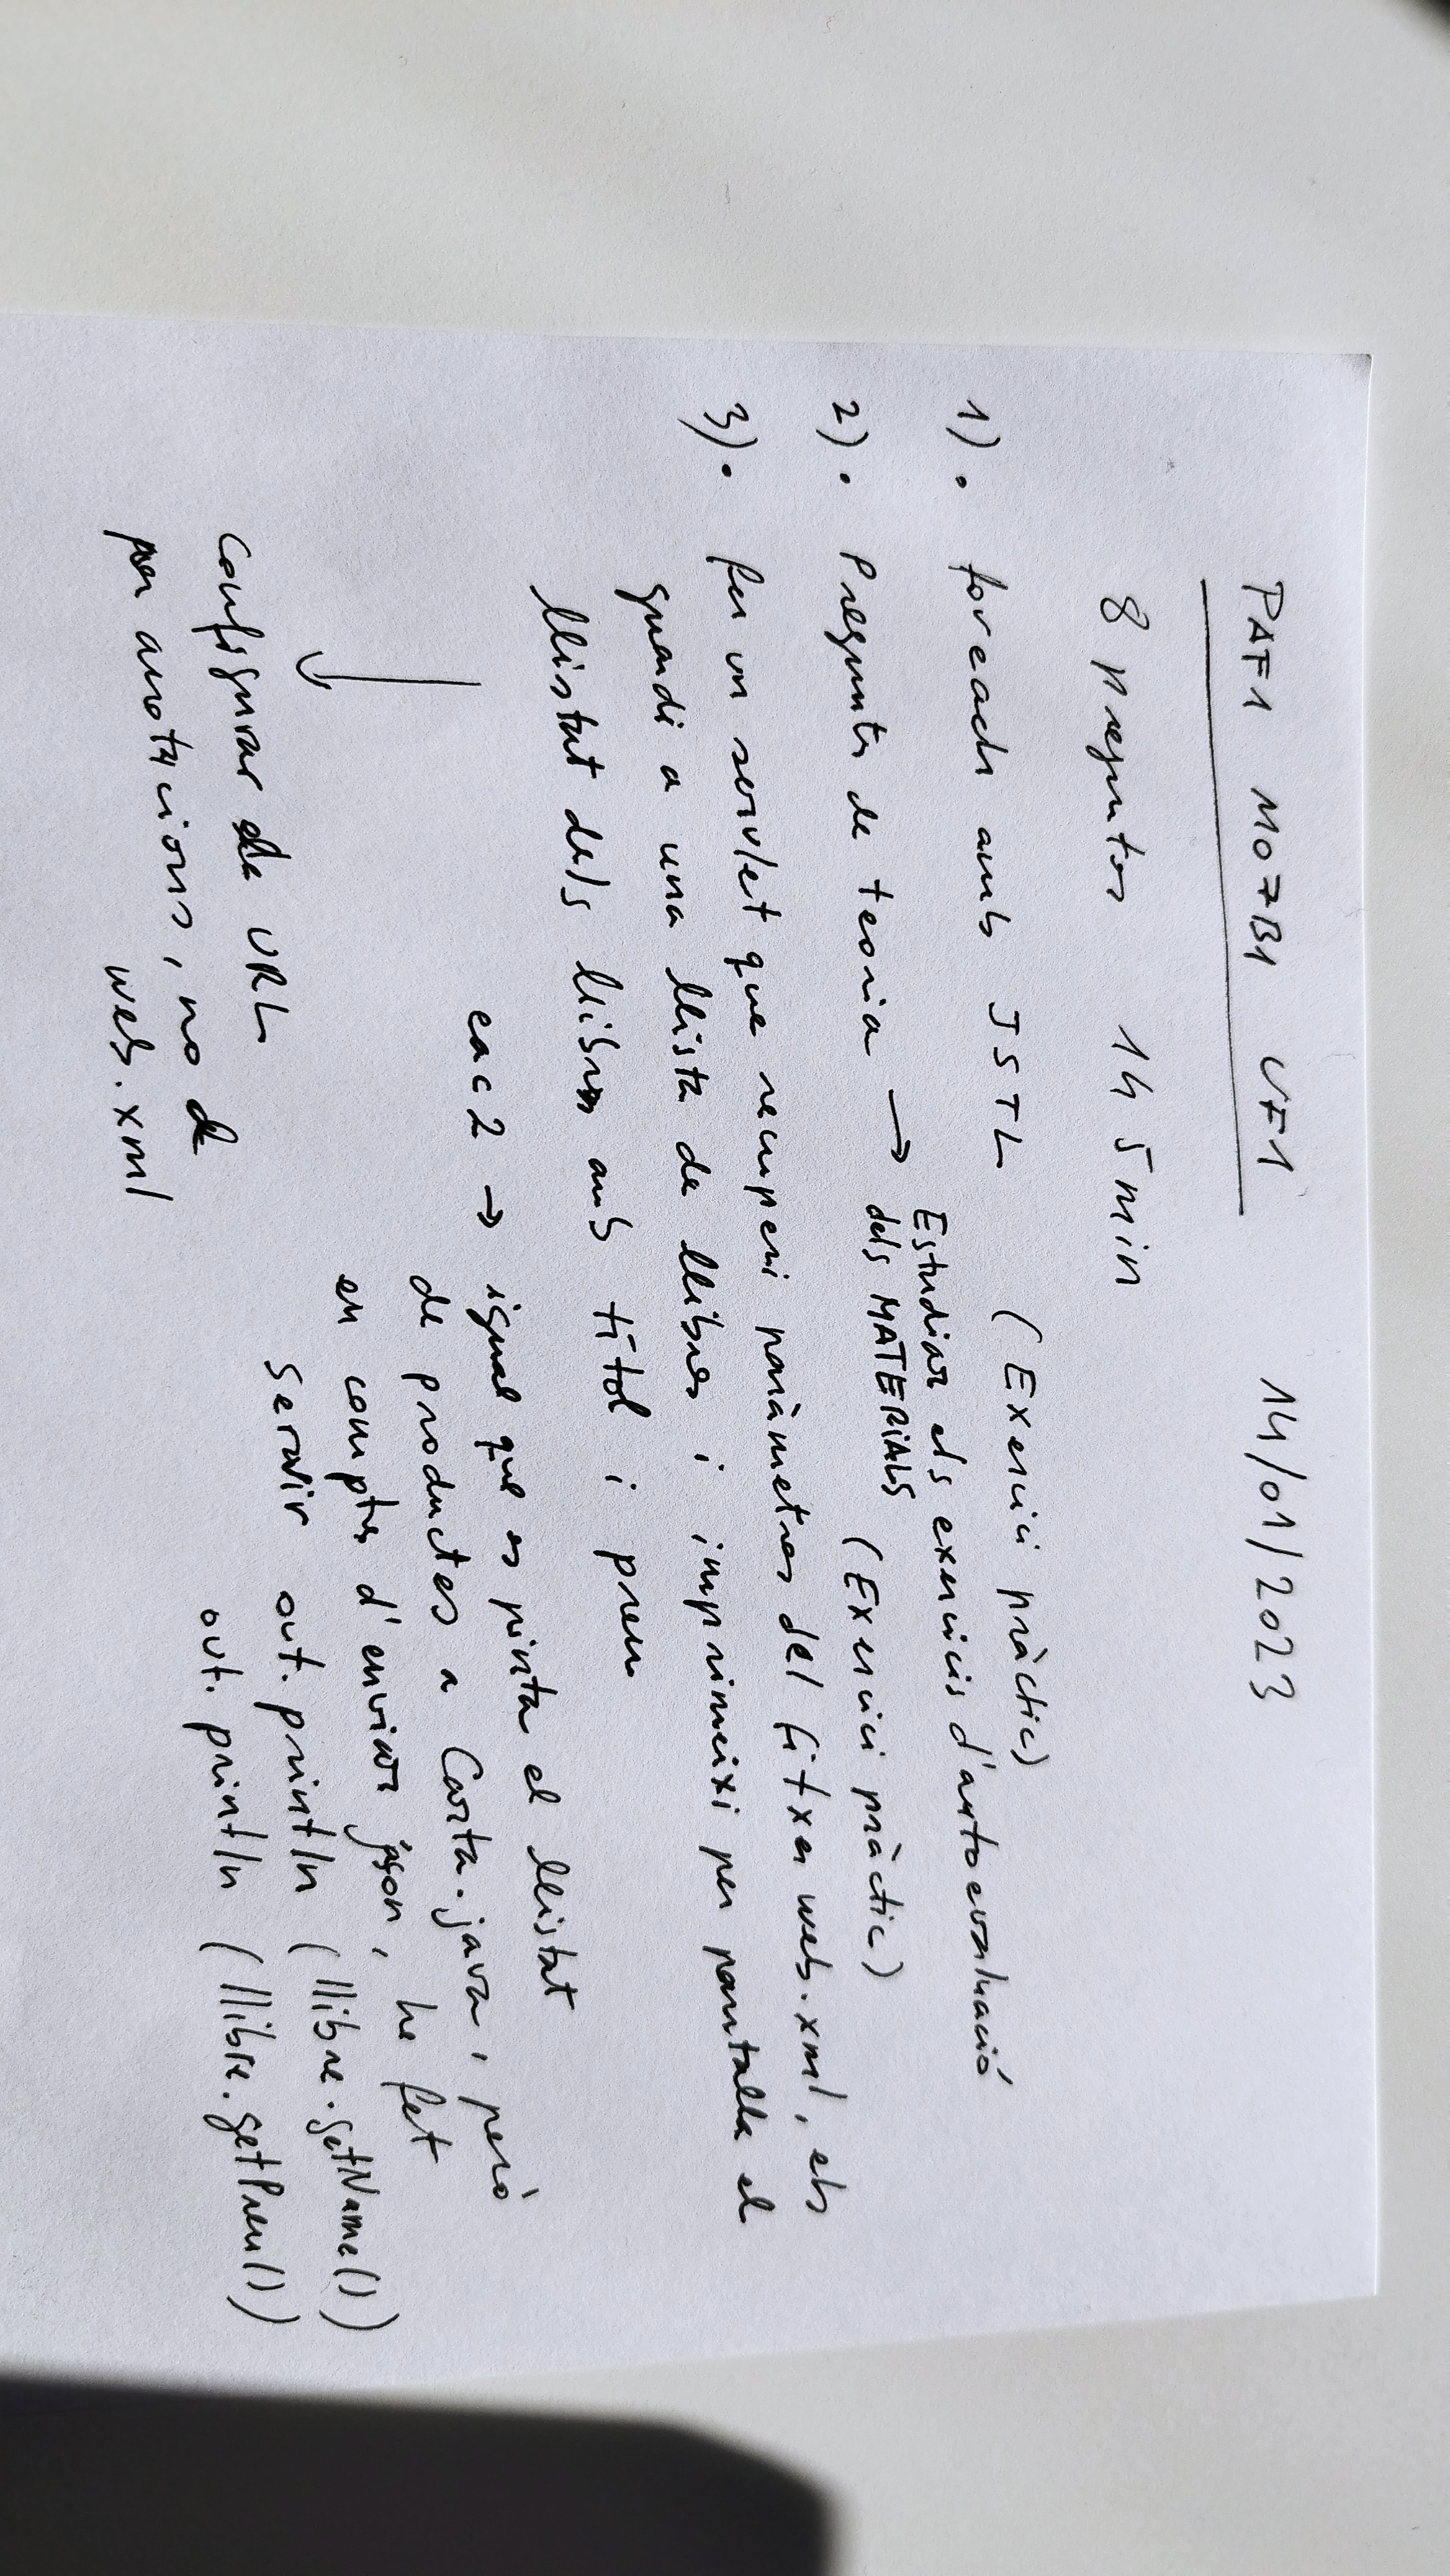 PAF1 M07B1 UF1 14/01/2023
8 preguntes 1h 5min
1). foreach amb JSTL (Exercici pràctic)
2). Pregunta de teoria → Estudiar els exercicis d'autoevaluació
dels MATERIALS (Exercici pràctic)
3). fer un servlet que recuperi paràmetres del fitxer web.xml, els
guardi a una llista de llibres i imprimeixi per pantalla el
llistat dels llibres amb títol i preu
eac2 → igual que es pinta el llistat
de productes a Carta.java, però
en comptes d'enviar json, he fet
servir out.println (llibre.getName())
out.println (llibre.getPreu())
Configurar la URL
per anotacions, no de
web.xml